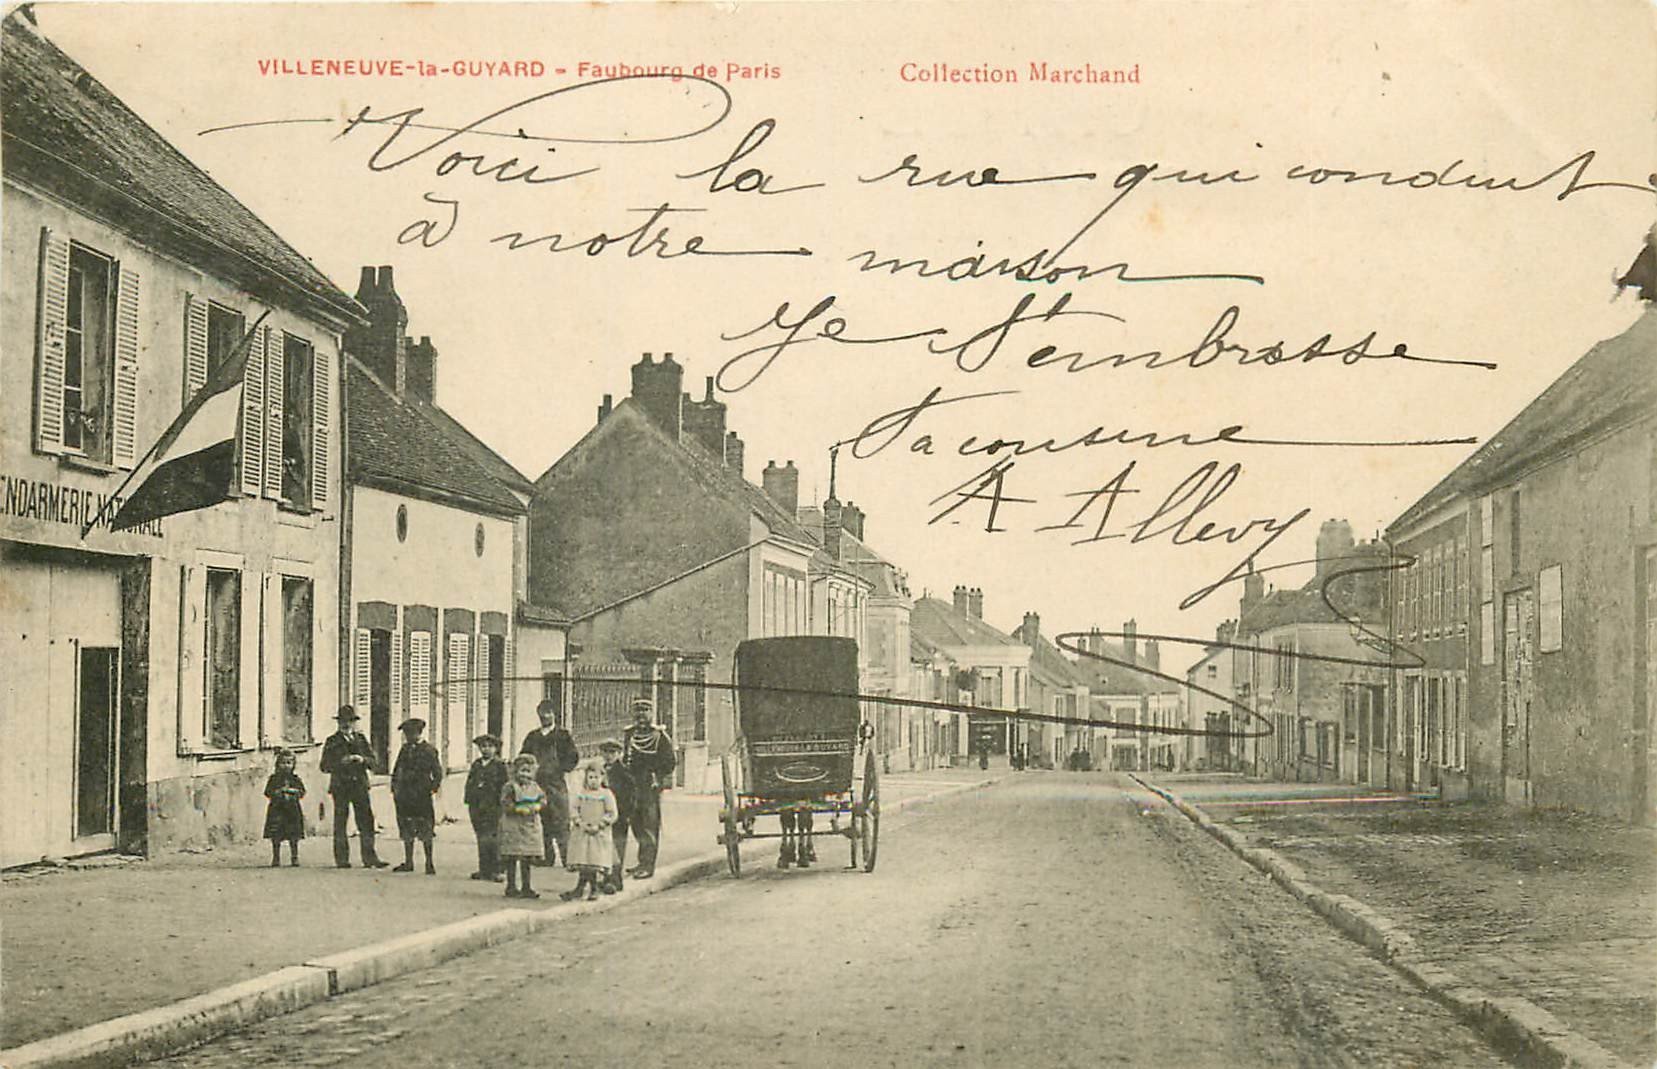 VILLENEUVE-la-GUYARD - Faubourg de Paris
Collection Marchand
Voici la rue qui conduit
à notre maison
Je t'embrasse
Ta cousine
A Allevy
GENDARMERIE NATIONALE